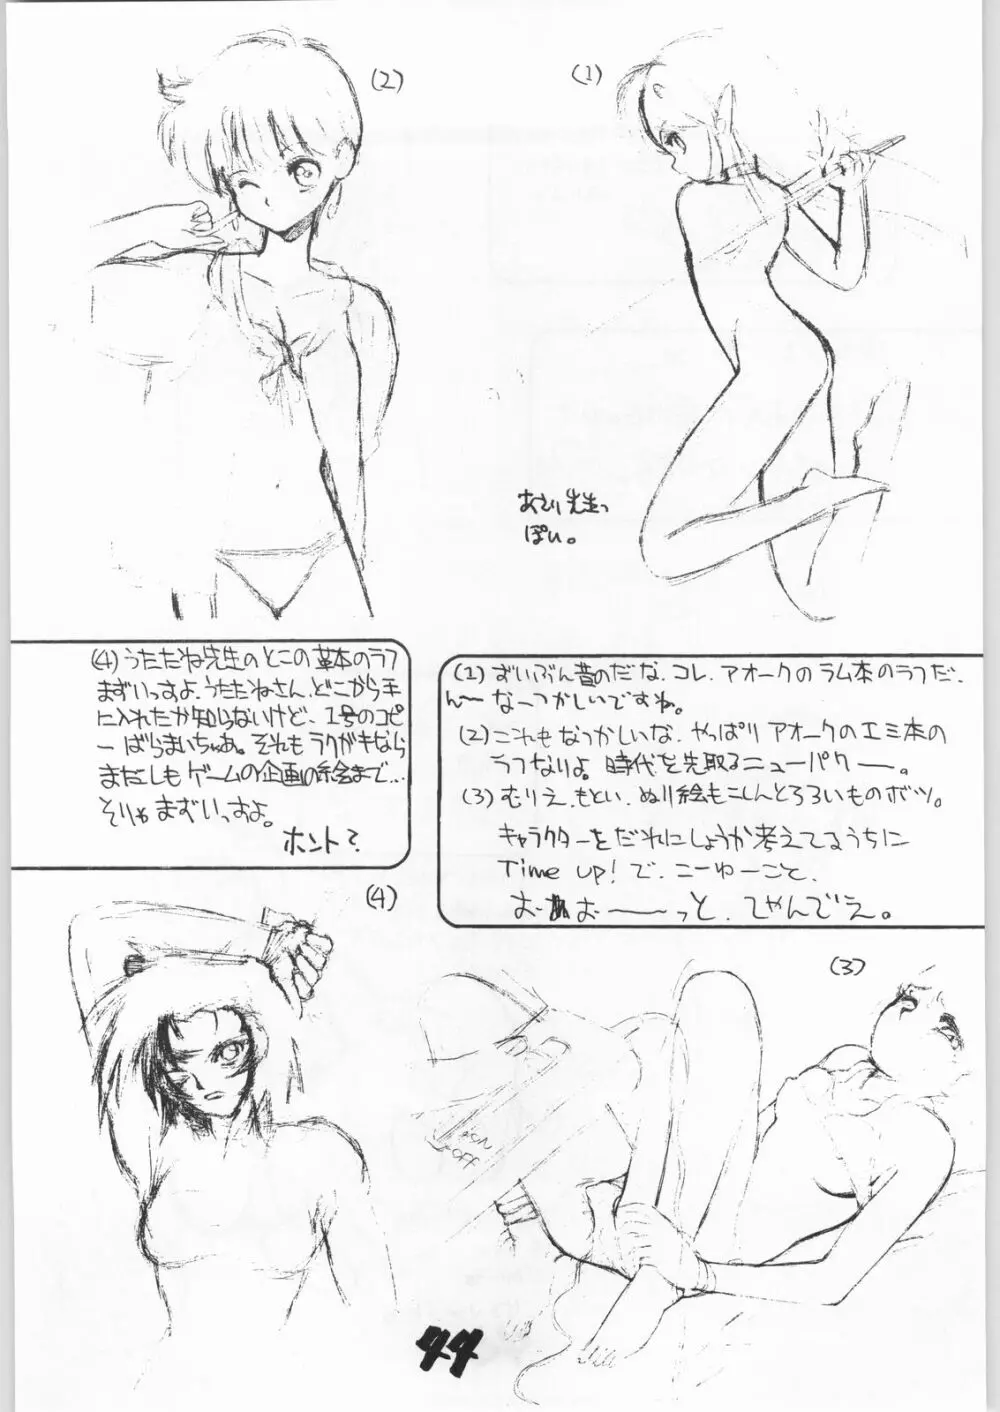 (2)
(1)
あさり先生っ
ぽい。
(1)ずいぶん昔のだな、コレ、アオークのラム本のラフだ、
ん〜な〜つかしいですね。
(2)これもなつかしいな、やっぱりアオークのエミ本の
ラフなりよ。時代を先取るニューパワー。
(3)むりえ、もとい、ぬり絵もこしんとろろいものボツ。
キャラクターをだれにしようか考えてるうちに
Time up!で、こーゆーごと、
お、あお――っと、てやんでえ。
(4)うたたね先生のとこの革本のラフ
まずいっすよ、うたたねさん、どこから手
に入れたか知らないけど、1号のコピ
ーばらまいちゃあ。それもラクガキなら
まだしもゲームの企画の絵まで…
そりゃまずいっすよ。
ホント?
(4)
(3)
ON
OFF
44